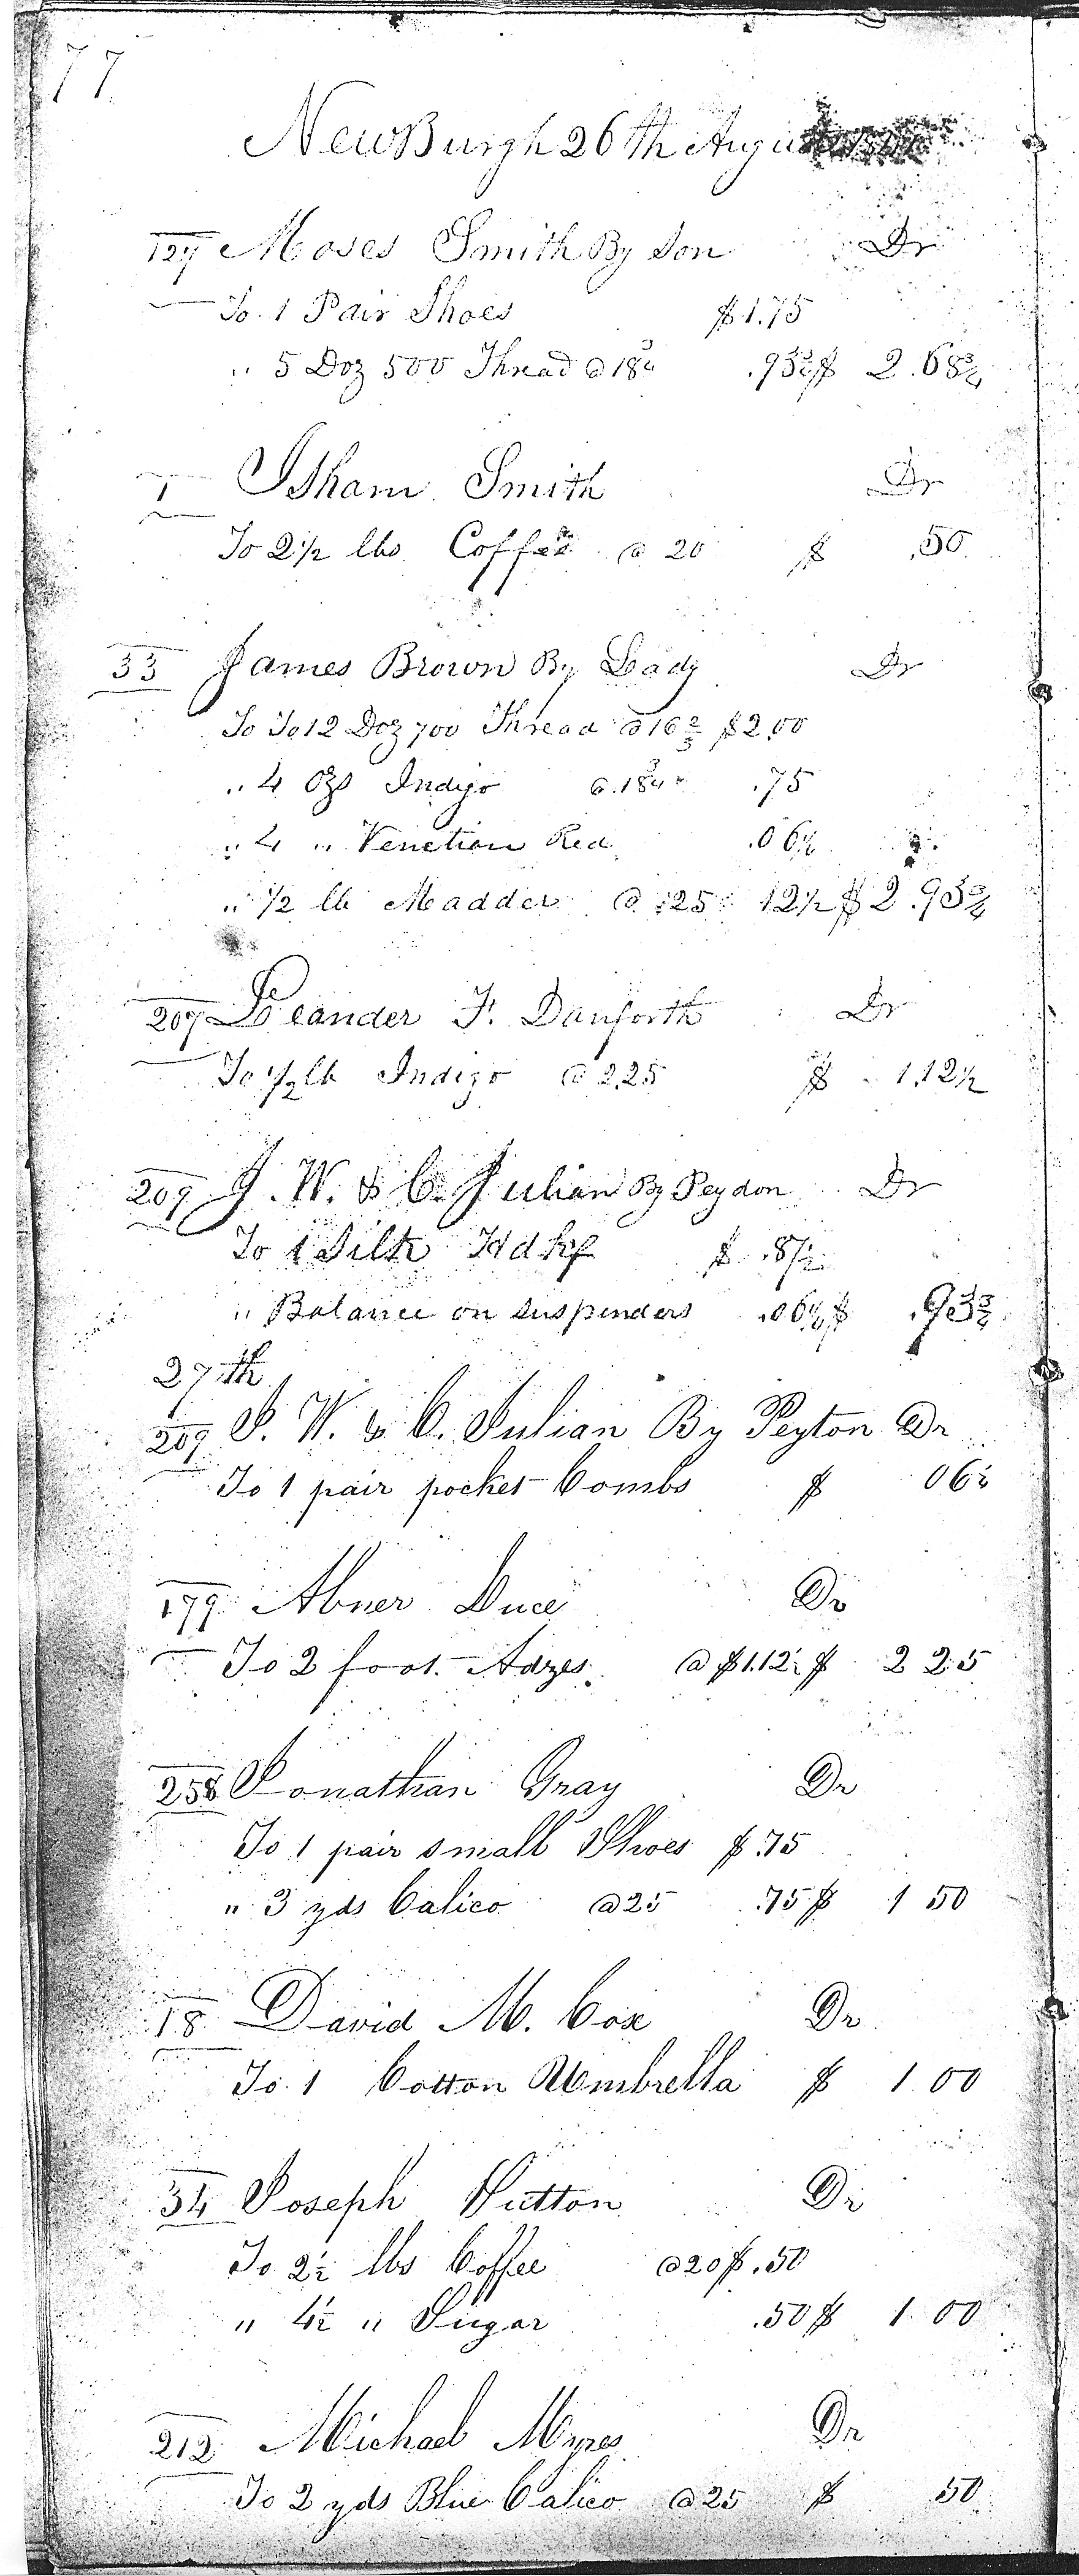 77
NewBurgh 26th August
127 Moses Smith By Son Dr
To 1 Pair Shoes $1.75
" 5 Doz 500 Thread @ 18¾ .93¾ $ 2.68¾
1 Isham Smith Dr
To 2½ lbs Coffee @ 20 $ .50
33 James Brown By Lady Dr
To To 12 Doz 700 Thread @ 16⅔ $2.00
" 4 Ozs Indigo @ .18¾ .75
" 4 " Venetian Red .06¼
" ½ lb Madder @ .25 12½ $ 2.93¾
207 Leander F. Danforth Dr
To ½ lb Indigo @ 2.25 $ 1.12½
209 J. W. & C. Julian By Peydon Dr
To 1 Silk Hdkf $ .87½
" Balance on suspenders .06¼ $ .93¾
27th
209 J. W. & C. Julian By Peyton Dr
To 1 pair pocket Combs $ 06¼
179 Abner Luce Dr
To 2 foot Adzes @ $1.12½ $ 2 25
258 Jonathan Gray Dr
To 1 pair small Shoes $ .75
" 3 yds Calico @ 25 .75 $ 1 50
18 David M. Cox Dr
To 1 Cotton Umbrella $ 1 00
34 Joseph Sutton Dr
To 2½ lbs Coffee @ 20 $ .50
" 4½ " Sugar .50 $ 1 00
212 Michael Myres Dr
To 2 yds Blue Calico @ 25 $ 50